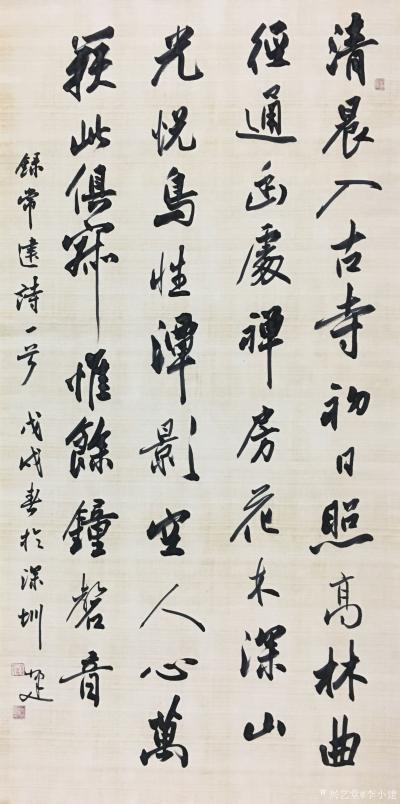 清晨入古寺初日照高林曲
徑通幽處禪房花木深山
光悦鳥性潭影空人心萬
籟此俱寂惟餘鐘磬音
録常建詩一首 戊戌春於深圳